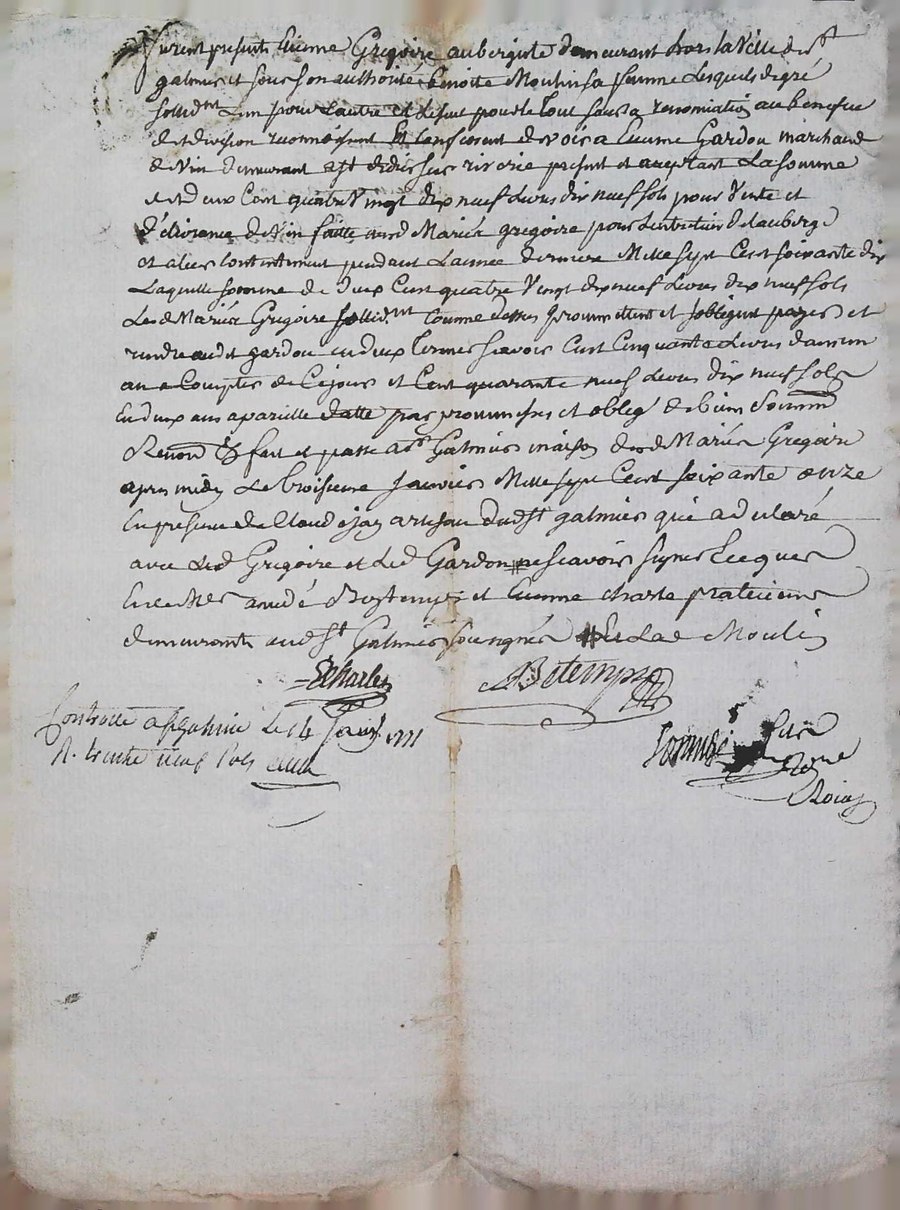 furent presents Etienne Gregoire aubergiste demeurant hors la Ville de st
galmier et sous son authorité benoite Moulin sa femme Lesquels de gré
sollidmt L'un pour L'autre et deseul pour le tout sans a renontiation au benefice
de division reconnoissent et confessent devoir a Etienne Gardon marchand
de Vin demeurant a st didier sur riverie present et acceptant La somme
de deux Cent quatre Vingt dix neuf Livres dix neuf sols pour Vente et
délivrance de Vin faitte aux d Mariés gregoire pour Lentretien de Lauberge
pendant Lannee derniere Mille sept Cent soixante dix
Laquelle somme de deux Cent quatre Vingt dix neuf Livres dix neuf sols
Lesd Mariés Gregoire sollidmt Comme dessus promettent et sobligent payer et
rendre audit gardon en deux termes scavoir Cent Cinquante Livres dans un
an a Compter de Ce jour et Cent quarante neuf Livres dix neuf sols
En deux ans a pareille datte par promesses et oblig de biens
Renond & fait et passé a st Galmier maison desd Mariés Gregoire
apres midy Le troisieme janvier Mille sept Cent soixante onze
En presence de Claude jay artisan dud st galmier qui a declaré
avec Led Gregoire et Led Gardon # ne scavoir signer Ce que
amedé Betemps et Etienne charle praticiens
demeurants aud st Galmier soussignés # Et Lad Moulin
E Charles
Betemps
Controllé a st galmier Le 14 janv 1771
R. trente neuf sols
notre
Roial